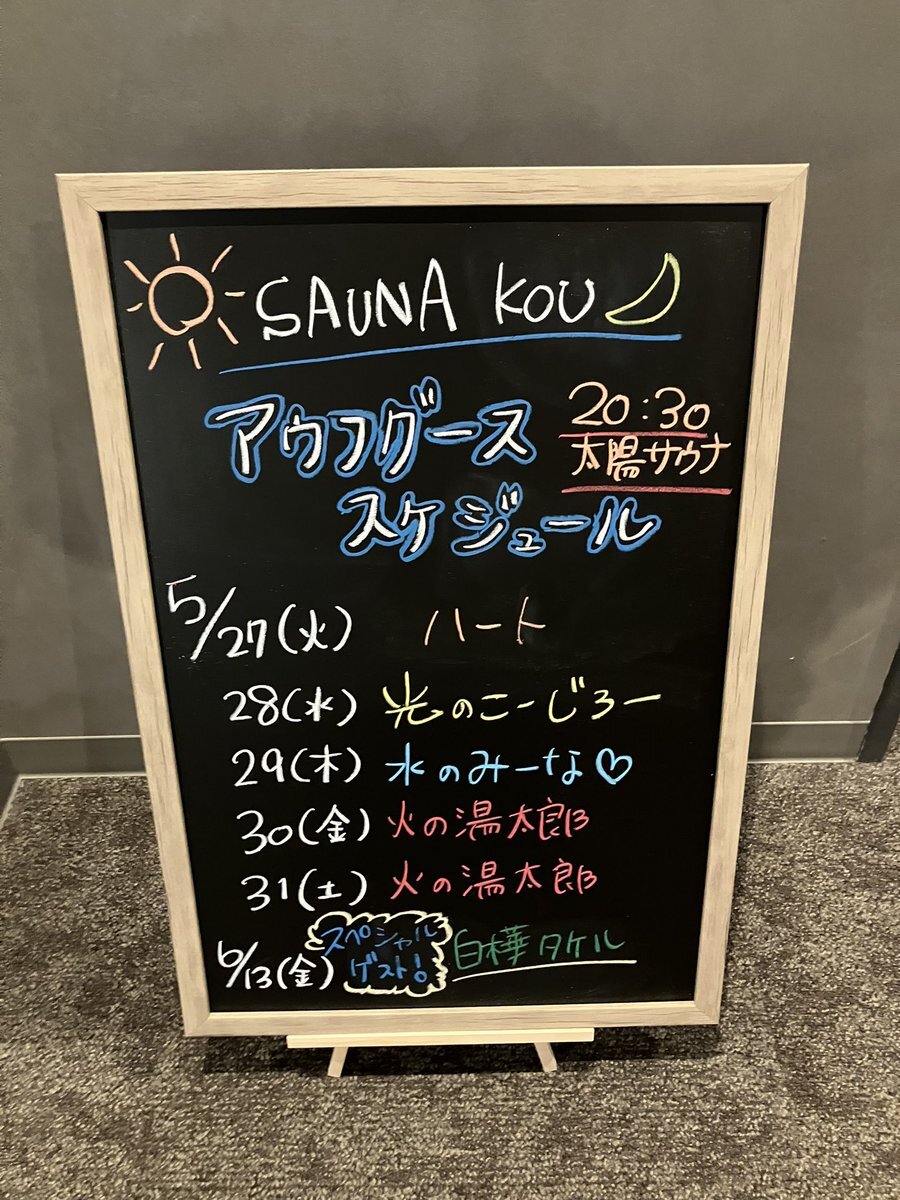 SAUNA KOU
アウフグース
20:30
太陽サウナ
スケジュール
5/27(火) ハート
28(水) 光のこーじろー
29(木) 水のみーな♡
30(金) 火の湯太郎
31(土) 火の湯太郎
6/13(金) スペシャルゲスト! 白樺タケル